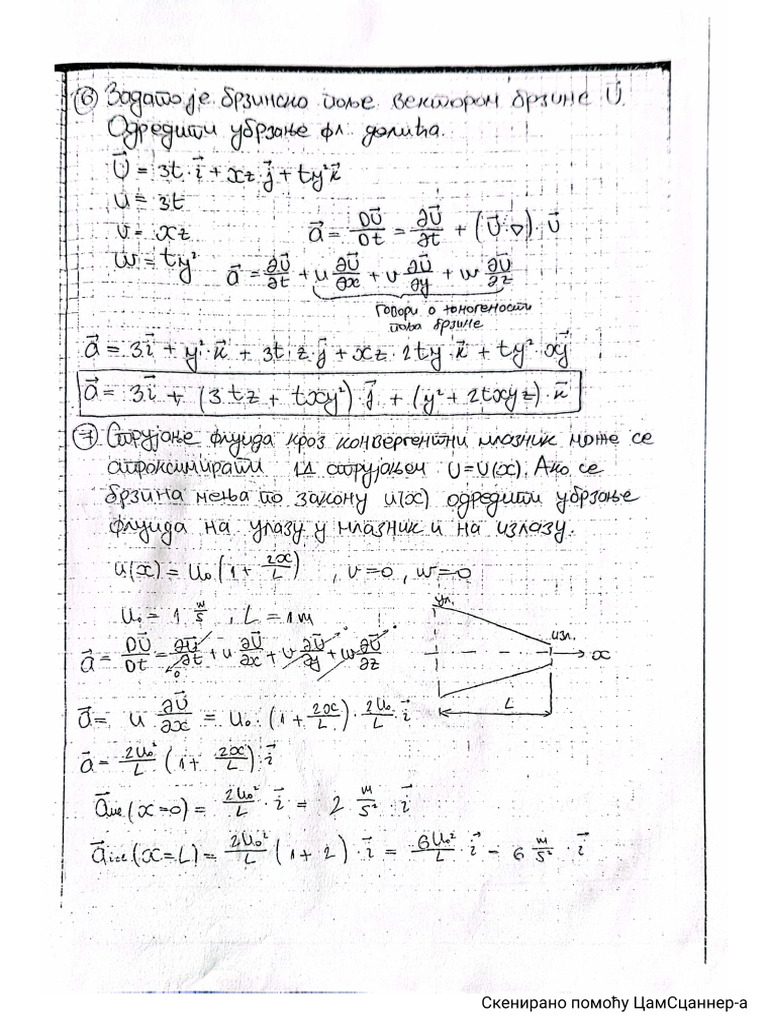 ⑥ Задато је брзинско поље вектором брзине U⃗.
Одредити убрзање фл. делића.
U⃗ = 3t·i⃗ + xz·j⃗ + ty²k⃗
u = 3t
v = xz a⃗ = DU⃗/Dt = ∂U⃗/∂t + (U⃗·∇)·U⃗
w = ty² a⃗ = ∂U⃗/∂t + u ∂U⃗/∂x + v ∂U⃗/∂y + w ∂U⃗/∂z
говори о хомогености
поља брзине
a⃗ = 3i⃗ + y²·k⃗ + 3t·z·j⃗ + xz·2ty·k⃗ + ty²·xj⃗
a⃗ = 3i⃗ + (3tz + txy²)·j⃗ + (y² + 2txyz)·k⃗
⑦ Струјање флуида кроз конвергентни млазник може се
апроксимирати 1Д струјањем U=U(x). Ако се
брзина мења по закону u(x) одредити убрзање
флуида на улазу у млазник и на излазу.
u(x) = U₀(1 + 2x/L) , v=0 , w=0
U₀ = 1 m/s , L = 1m
ул.
изл.
x
L
a⃗ = DU⃗/Dt = ∂U⃗/∂t + u ∂U⃗/∂x + v ∂U⃗/∂y + w ∂U⃗/∂z
a⃗ = u ∂U⃗/∂x = U₀·(1 + 2x/L)·2U₀/L·i⃗
a⃗ = 2U₀²/L (1 + 2x/L)·i⃗
a⃗ул(x=0) = 2U₀²/L·i⃗ = 2 m/s²·i⃗
a⃗изл(x=L) = 2U₀²/L (1+2)·i⃗ = 6U₀²/L·i⃗ - 6 m/s²·i⃗
Скенирано помоћу ЦамСцаннер-а